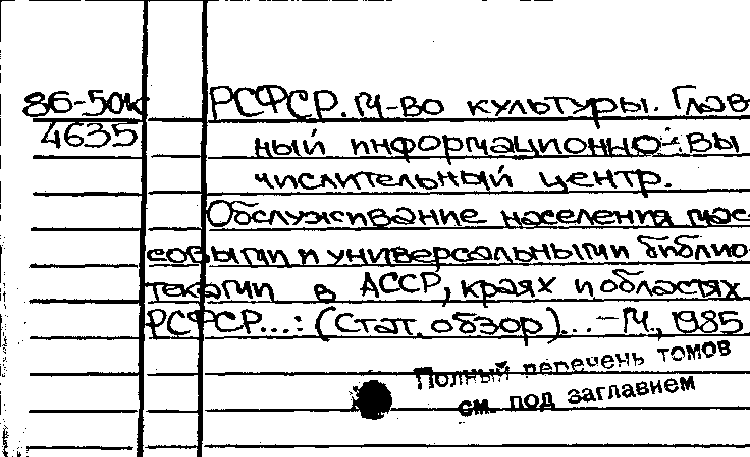 86-50к РСФСР. М-во культуры. Глав
4635 ный информационно-вы
числительный центр.
Обслуживание населения мас
совыми и универсальными библио
теками в АССР, краях и областях
РСФСР...: (Стат. обзор)... - М., 1985
Полный перечень томов
см. под заглавием